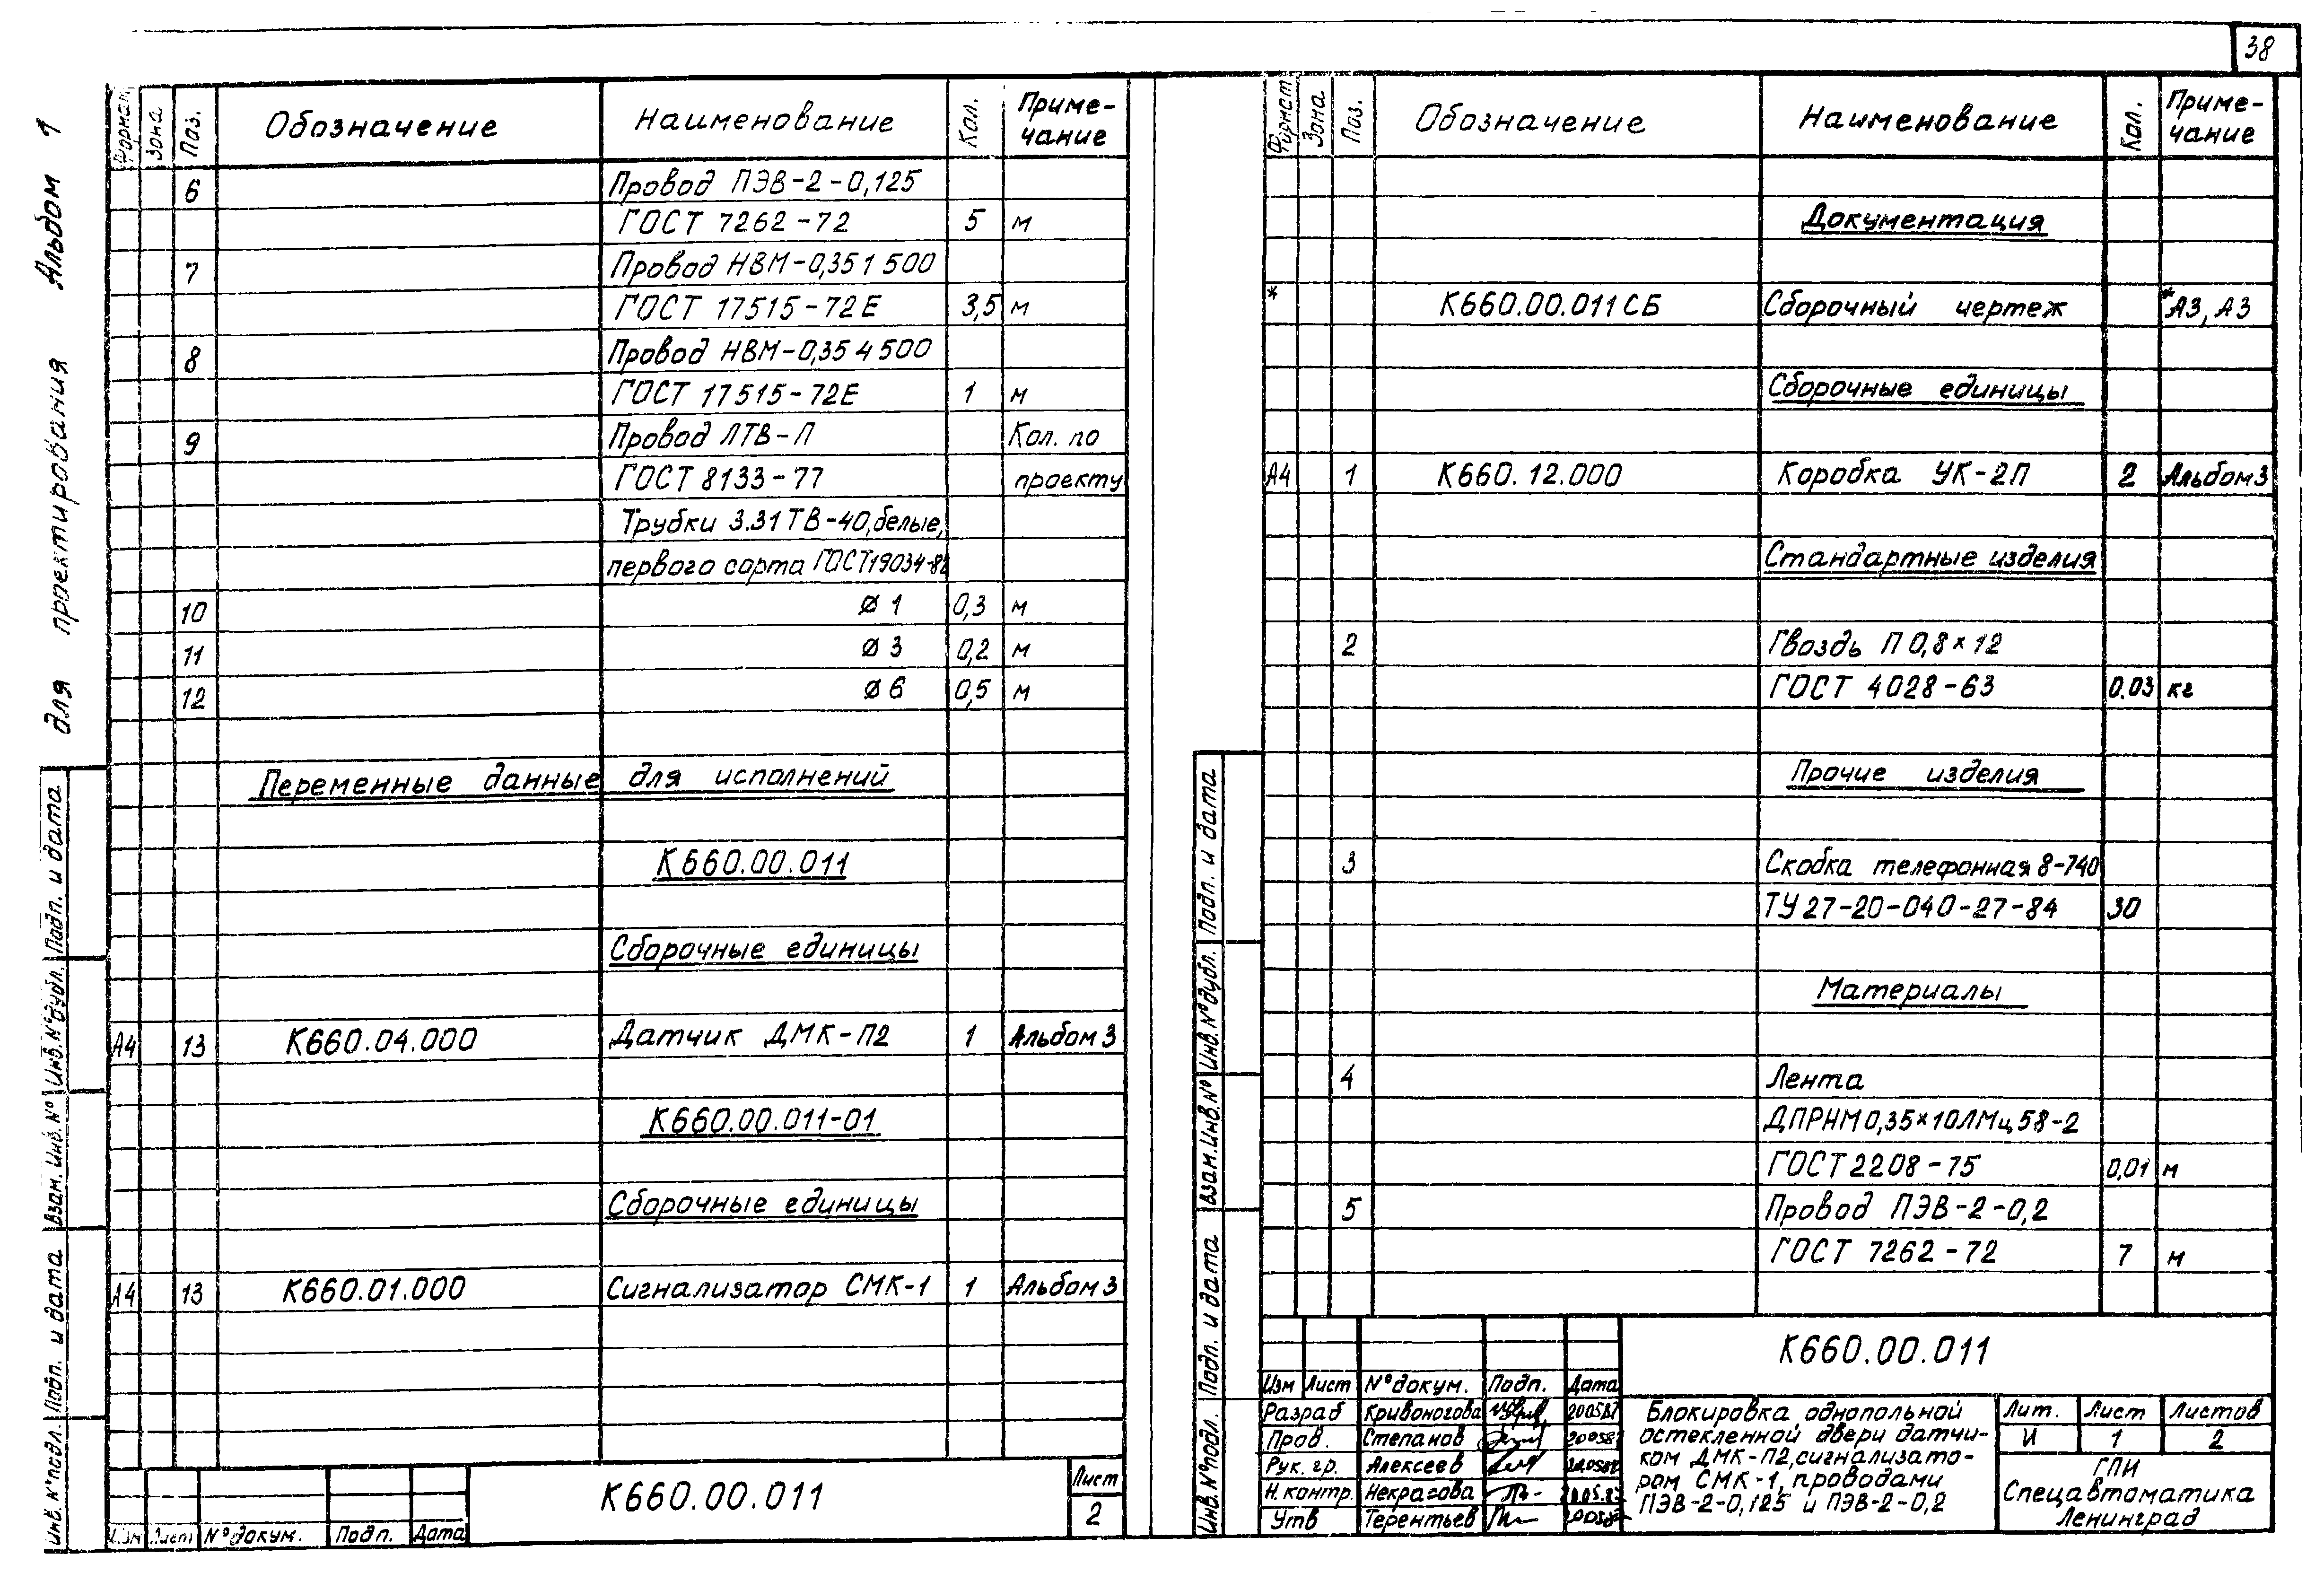 38
Альбом 1
для проектирования
Формат Зона Поз. Обозначение Наименование Кол. Приме-
чание
6 Провод ПЭВ-2-0,125
ГОСТ 7262-72 5 м
7 Провод НВМ-0,35 1 500
ГОСТ 17515-72Е 3,5 м
8 Провод НВМ-0,35 4 500
ГОСТ 17515-72Е 1 м
9 Провод ЛТВ-П Кол. по
ГОСТ 8133-77 проекту
Трубки 3.31 ТВ-40, белые,
первого сорта ГОСТ 19034-82
10 Ø 1 0,3 м
11 Ø 3 0,2 м
12 Ø 6 0,5 м
Переменные данные для исполнений
К660.00.011
Сборочные единицы
А4 13 К660.04.000 Датчик ДМК-П2 1 Альбом 3
К660.00.011-01
Сборочные единицы
А4 13 К660.01.000 Сигнализатор СМК-1 1 Альбом 3
Подп. и дата
Инв. № дубл.
Взам. Инв. №
Подп. и дата
Инв. № подл.
Изм Лист № докум. Подп. Дата
К660.00.011
Лист
2
Формат Зона Поз. Обозначение Наименование Кол. Приме-
чание
Документация
* К660.00.011 СБ Сборочный чертеж *А3, А3
Сборочные единицы
А4 1 К660.12.000 Коробка УК-2П 2 Альбом 3
Стандартные изделия
2 Гвоздь П 0,8×12
ГОСТ 4028-63 0.03 кг
Прочие изделия
3 Скобка телефонная 8-740
ТУ 27-20-040-27-84 30
Материалы
4 Лента
ДПРНМ 0,35×10 ЛМц 58-2
ГОСТ 2208-75 0,01 м
5 Провод ПЭВ-2-0,2
ГОСТ 7262-72 7 м
Подп. и дата
Инв. № дубл.
Взам. Инв. №
Подп. и дата
Инв. № подл.
К660.00.011
Изм Лист № докум. Подп. Дата
Разраб Кривоногова 200587
Пров. Степанов 200587
Рук. гр. Алексеев
Н. контр. Некрасова
Утв Терентьев
Блокировка однопольной
остекленной двери датчи-
ком ДМК-П2, сигнализато-
ром СМК-1, проводами
ПЭВ-2-0,125 и ПЭВ-2-0,2
Лит. Лист Листов
И 1 2
ГПИ
Спецавтоматика
Ленинград